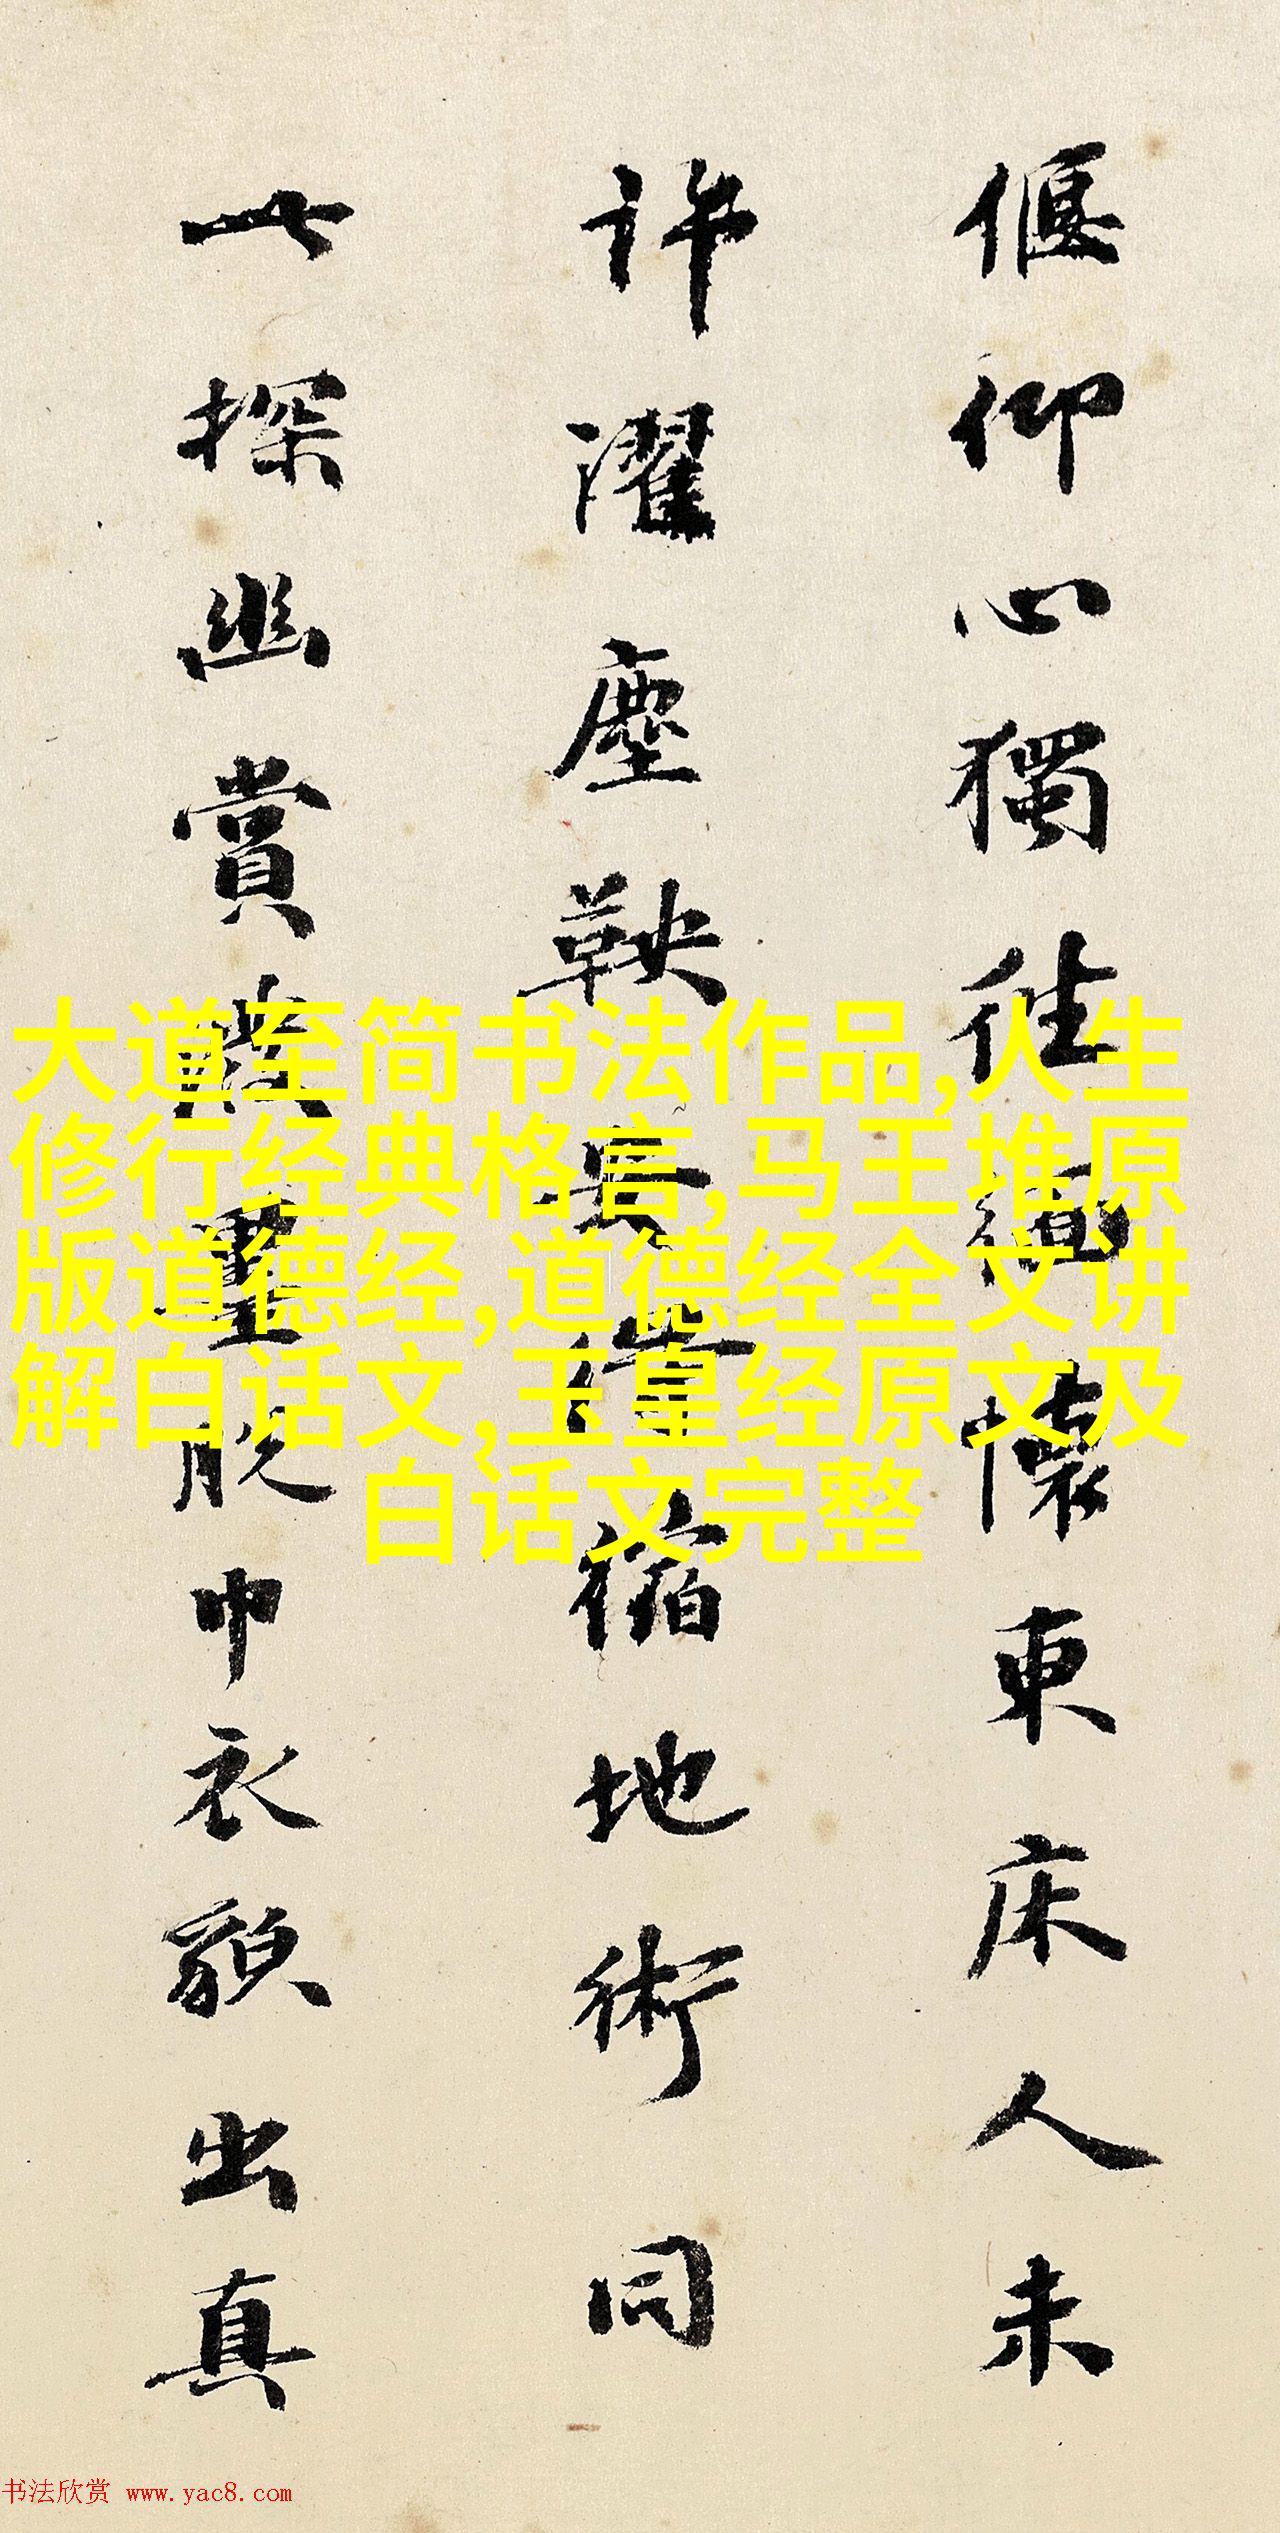 偃仰心獨往緬懷東床人未
許濯塵鞅安得縮地術同
此探幽賞墨脱巾衣貌出真
大道至简书法作品,人生
修行经典格言,马王堆原
版道德经,道德经全文讲
解白话文,玉皇经原文及
白话文完整
书法欣赏 www.yac8.com